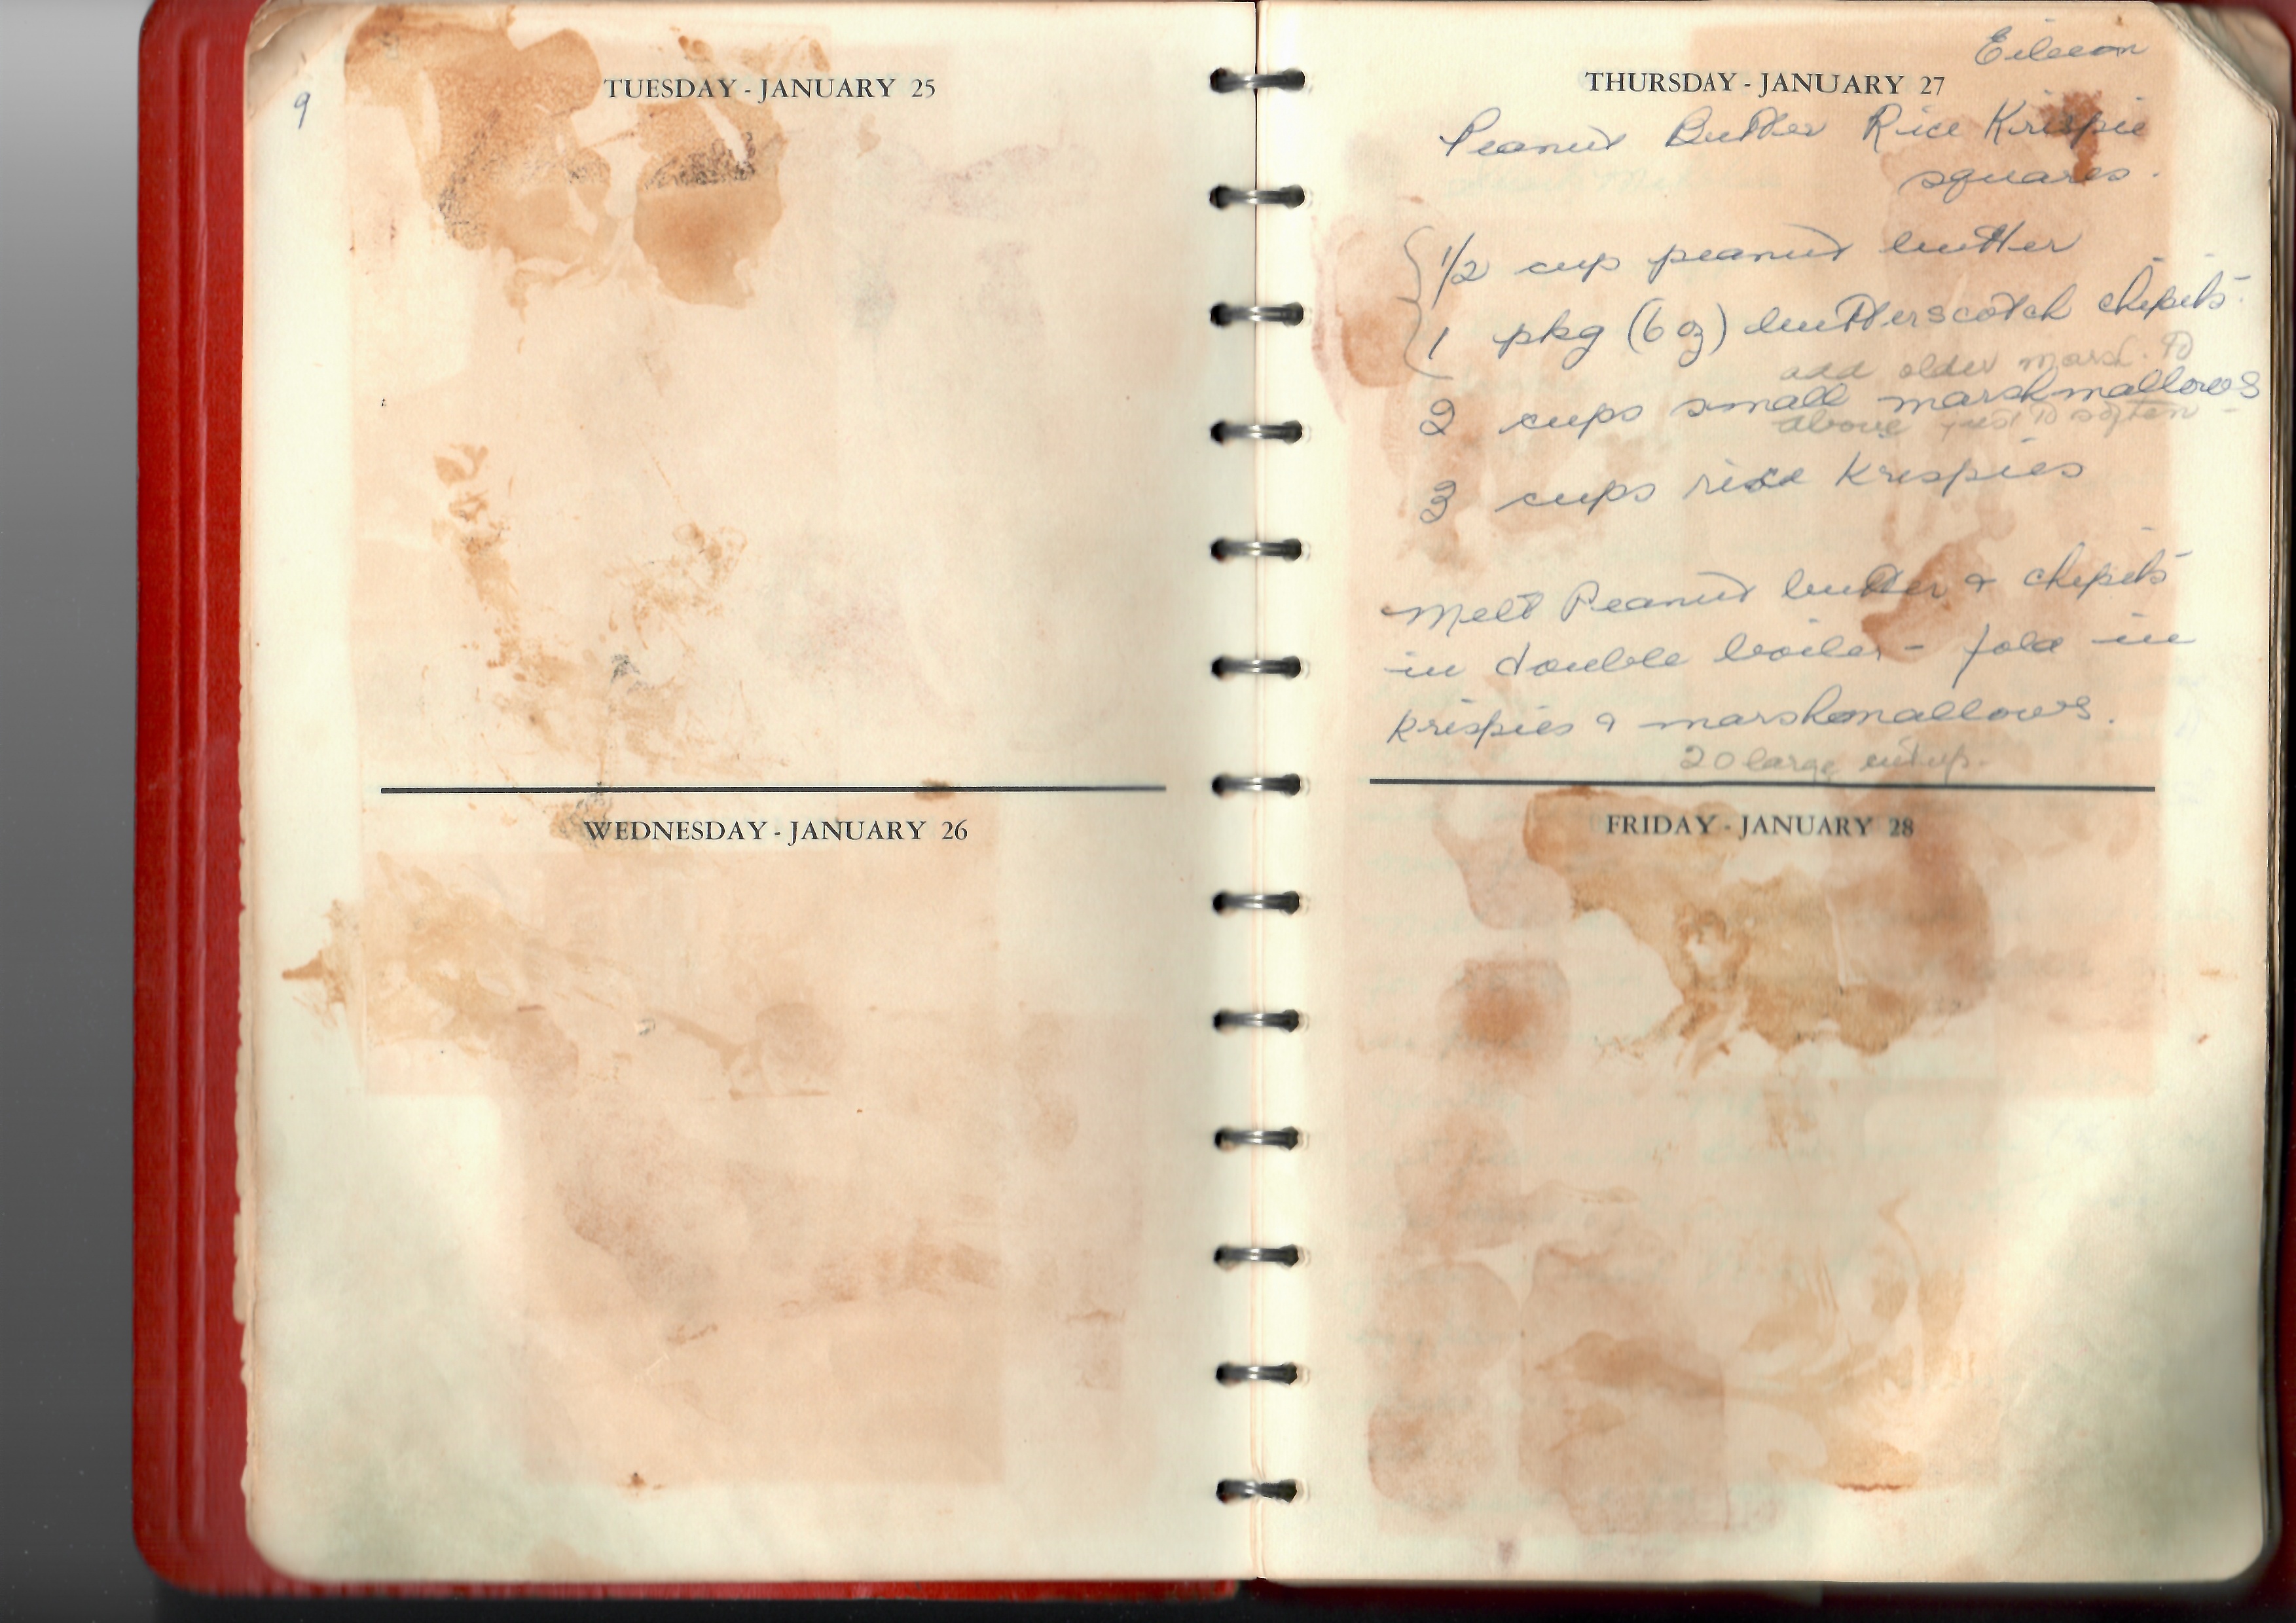 9
TUESDAY - JANUARY 25
WEDNESDAY - JANUARY 26
Eileen
THURSDAY - JANUARY 27
Peanut Butter Rice Krispie
squares.
1/2 cup peanut butter
1 pkg (6 oz) butterscotch chipits
add older marsh. to
2 cups small marshmallows
above just to soften -
3 cups rice krispies
Melt Peanut butter & chipits
in double boiler - fold in
krispies & marshmallows.
20 large cut up.
FRIDAY - JANUARY 28